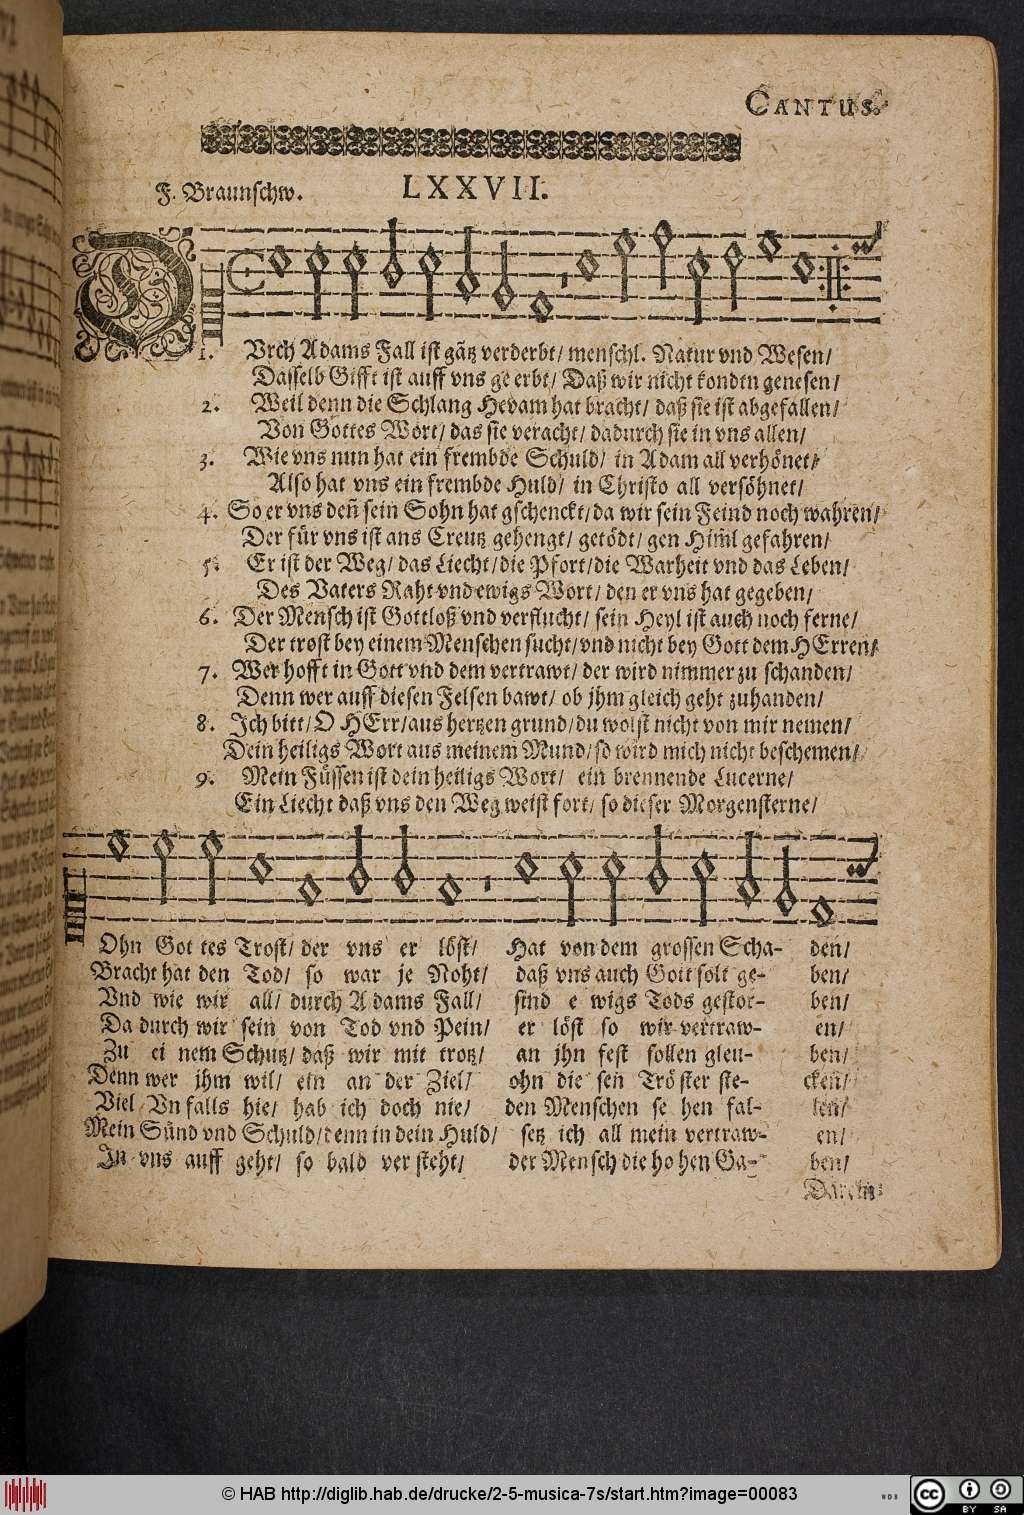 CANTUS.
F. Braunschw. LXXVII.
D
1. Vrch Adams Fall ist gãtz verderbt/ menschl. Natur vnd Wesen/
Dasselb Gifft ist auff vns ge erbt/ Daß wir nicht kondtn genesen/
2. Weil denn die Schlang Hevam hat bracht/ daß sie ist abgefallen/
Von Gottes Wort/ das sie veracht/ dadurch sie in vns allen/
3. Wie vns nun hat ein frembde Schuld/ in Adam all verhönet/
Also hat vns ein frembde Huld/ in Christo all versöhnet/
4. So er vns deñ sein Sohn hat gschenckt/ da wir sein Feind noch wahren/
Der für vns ist ans Creutz gehengt/ getödt/ gen Him̃l gefahren/
5. Er ist der Weg/ das Liecht/ die Pfort/ die Warheit vnd das Leben/
Des Vaters Raht vnd ewigs Wort/ den er vns hat gegeben/
6. Der Mensch ist Gottloß vnd verflucht/ sein Heyl ist auch noch ferne/
Der trost bey einem Menschen sucht/ vnd nicht bey Gott dem HErren/
7. Wer hofft in Gott vnd dem vertrawt/ der wird nimmer zu schanden/
Denn wer auff diesen Felsen bawt/ ob jhm gleich geht zuhanden/
8. Ich bitt/ O HErr/ aus hertzen grund/ du wolst nicht von mir nemen/
Dein heiligs Wort aus meinem Mund/ so wird mich nicht beschemen/
9. Mein Füssen ist dein heiligs Wort/ ein brennende Lucerne/
Ein Liecht daß vns den Weg weist fort/ so dieser Morgensterne/
Ohn Got tes Trost/ der vns er löst/ Hat von dem grossen Scha- den/
Bracht hat den Tod/ so war je Noht/ daß vns auch Gott solt ge- ben/
Vnd wie wir all/ durch Adams Fall/ sind e wigs Tods gestor- ben/
Da durch wir sein von Tod vnd Pein/ er löst so wir vertraw- en/
Zu ei nem Schutz/ daß wir mit trotz/ an jhn fest sollen gleu- ben/
Denn wer jhm wil/ ein an der Ziel/ ohn die sen Trö ster ste- cken/
Viel Vn falls hie/ hab ich doch nie/ den Menschen se hen fal- len/
Mein Sünd vnd Schuld/ denn in dein Huld/ setz ich all mein vertraw- en/
In vns auff geht/ so bald ver steht/ der Mensch die ho hen Ga- ben/
© HAB http://diglib.hab.de/drucke/2-5-musica-7s/start.htm?image=00083
WDB
CC BY SA